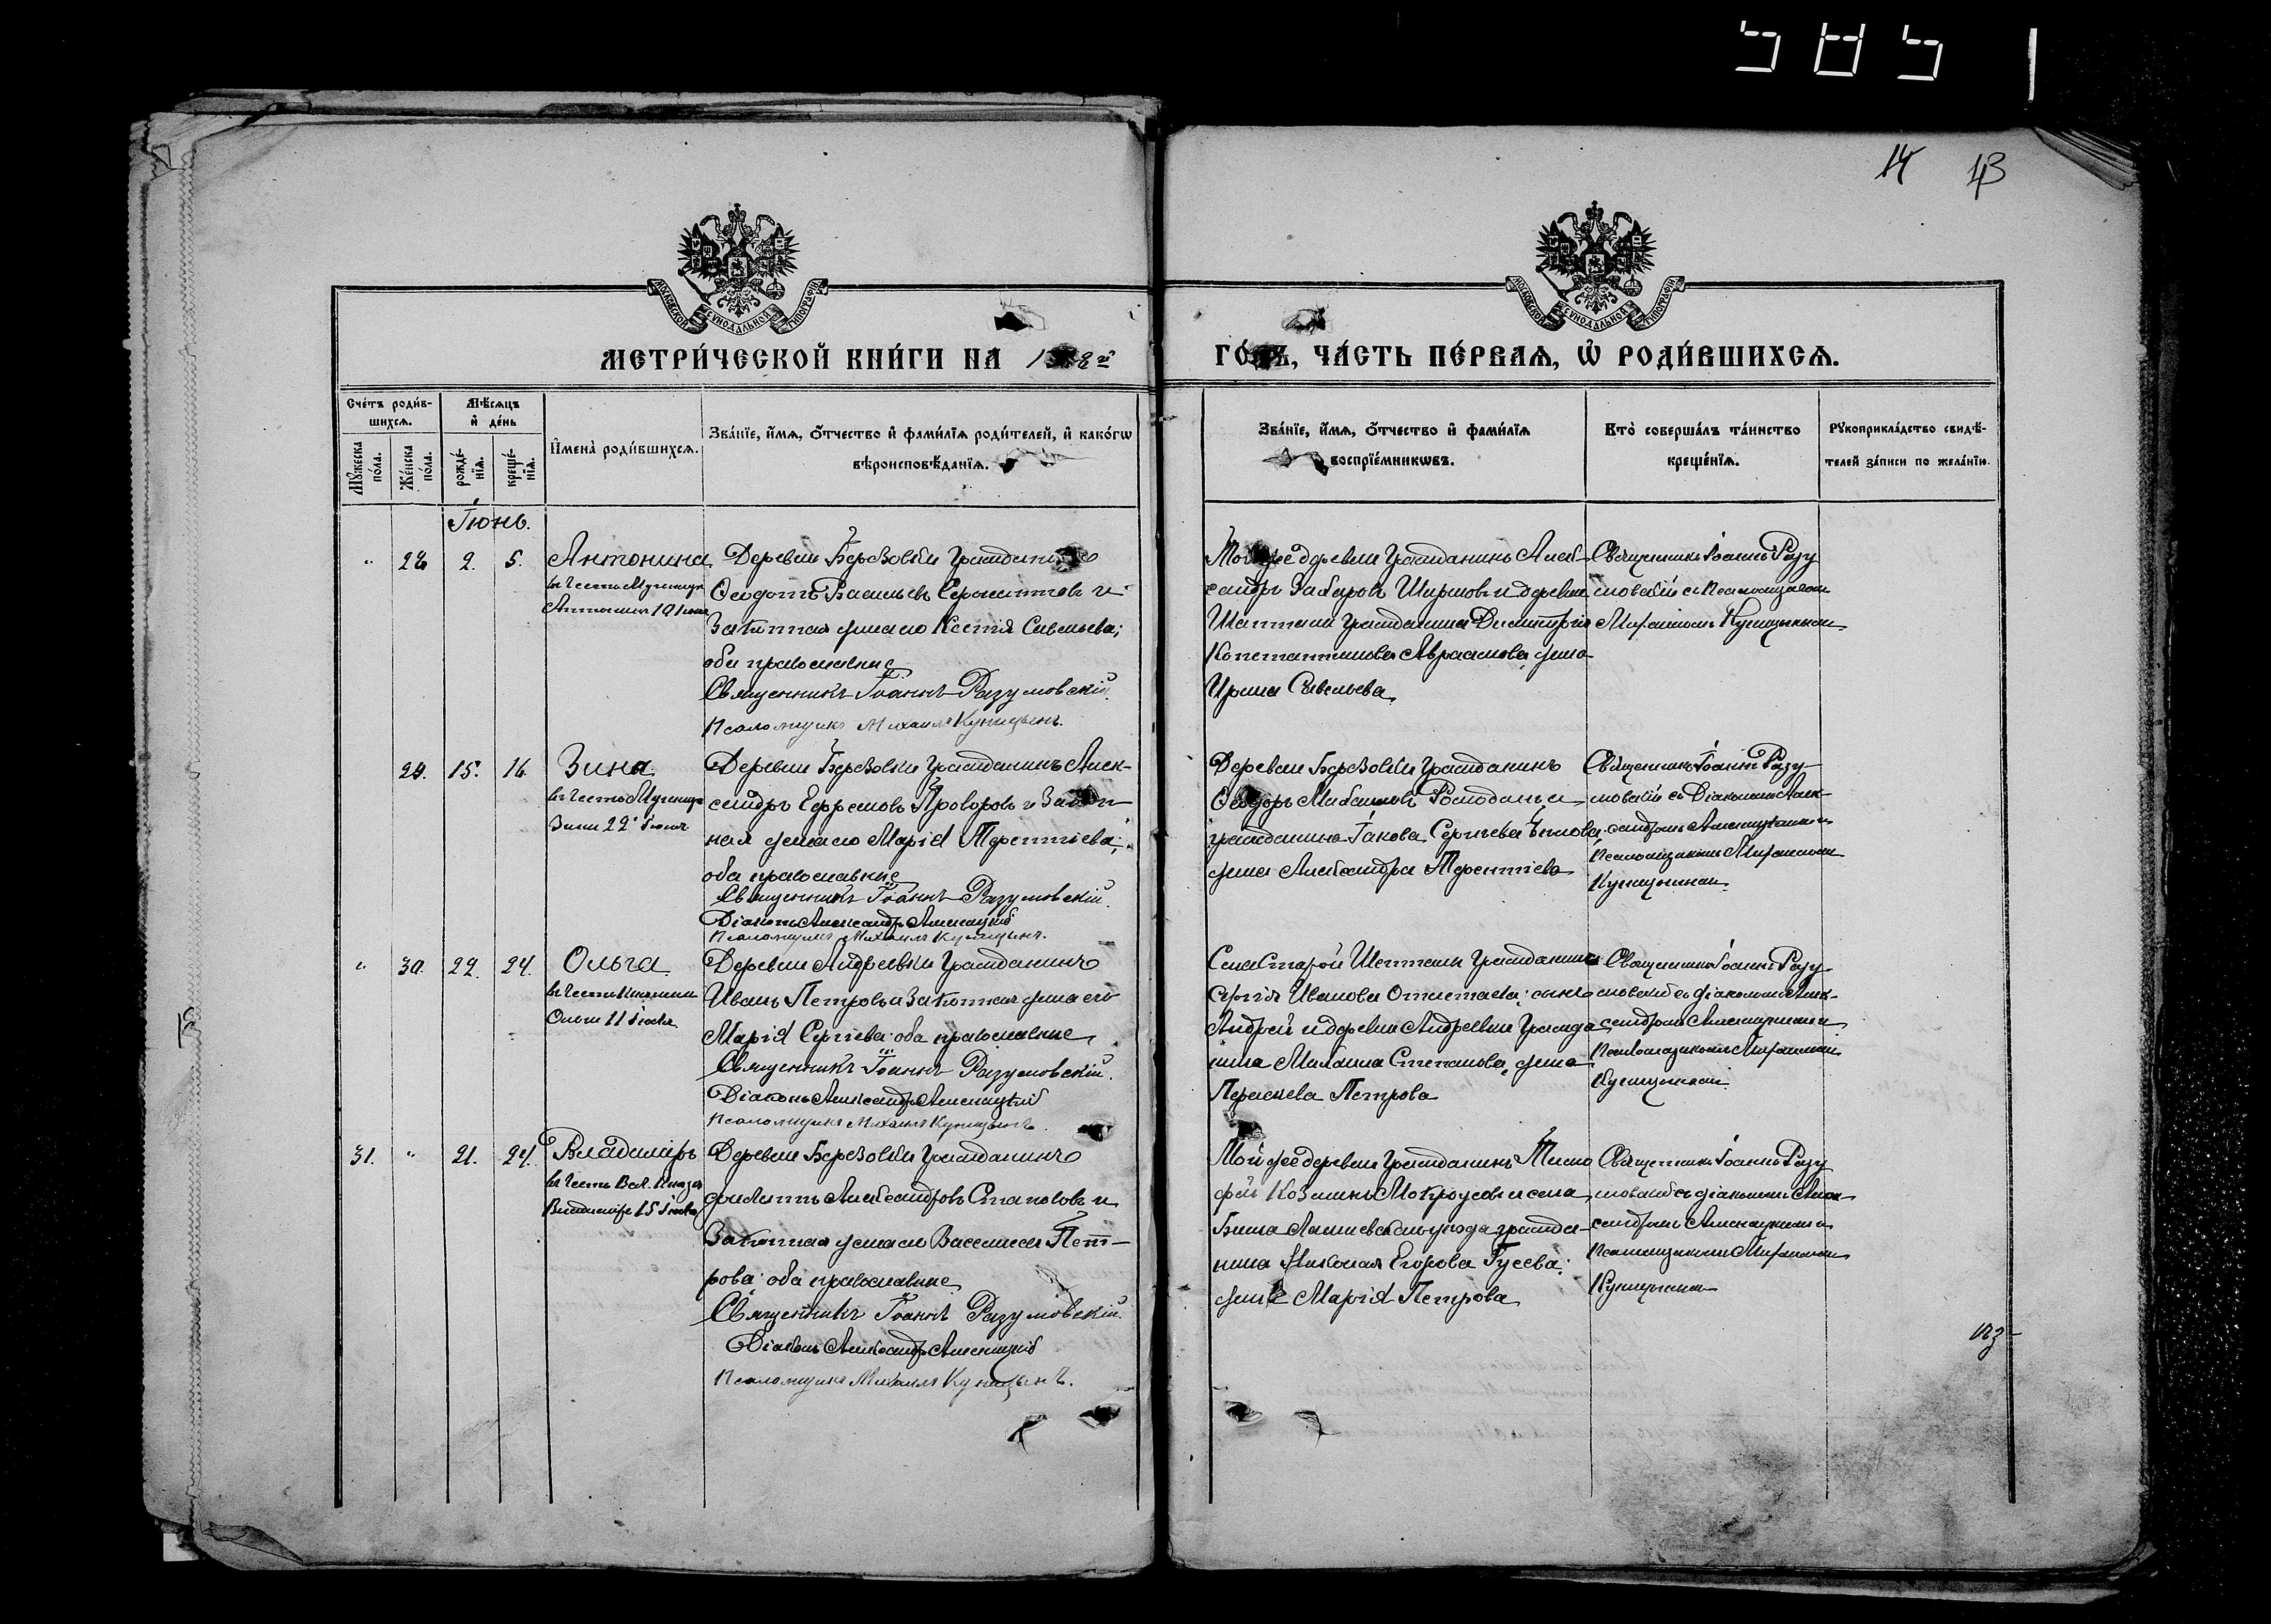 5851
14 13
МОСКОВСКОЙ СѴНОДАЛЬНОЙ ТИПОГРАФІИ
МОСКОВСКОЙ СѴНОДАЛЬНОЙ ТИПОГРАФІИ
МЕТРИ́ЧЕСКОЙ КНИ́ГИ НА
ГО́ДЪ, ЧА́СТЬ ПЕ́РВАѦ, Ѡ҆ РОДИ́ВШИХСѦ.
Сче́тъ роди́в-
шихсѧ.
Мѣ́сѧцъ
и҆ де́нь
Мꙋ́жеска по́ла.
Же́нска по́ла.
рожде́-
нїѧ.
креще́-
нїѧ.
И҆мена̀ роди́вшихсѧ.
Зва́нїе, и҆́мѧ, ѻ҆́тчество и҆ фами́лїѧ роди́телей, и҆ како́гѡ
вѣроисповѣ́данїѧ.
Зва́нїе, и҆́мѧ, ѻ҆́тчество и҆ фами́лїѧ
воспрїе́мникѡвъ.
Кто̀ соверша́лъ та́инство
креще́нїѧ.
Рꙋкоприкла́дство свидѣ́-
телей за́писи по жела́нїю.
Іюнь.
" 28 2. 5. Антонина
въ честь Мученицы
Антонины 10 іюня
Деревни Березовки Гражданинъ
Ѳеодотъ Васильевъ и
Законная жена его Ксенія Савельева;
оба православные
Священникъ Іоаннъ Разумовскій.
Псаломщикъ Михаилъ Куницынъ.
Той же деревни Гражданинъ Алек-
сандръ Захаровъ Ширшовъ и деревни
гражданина Димитрія
Константинова Авраамова жена
Ирина Савельева
Священникъ Іоаннъ Разу
мовскій съ Псаломщикомъ
Михаиломъ Куницынымъ.
29. 15. 16. Зина
въ честь Мученицы
Зины 22 іюня
Деревни Березовки Гражданинъ Алек-
сандръ Ефремовъ Прохоровъ и Закон-
ная жена его Марія Терентіева;
оба православные
Священникъ Іоаннъ Разумовскій.
Діаконъ Александръ
Псаломщикъ Михаилъ Куницынъ.
Деревни Березовки Гражданинъ
Ѳеодоръ и
гражданина Іакова Сергіева
жена Александра Терентіева
Священникъ Іоаннъ Разу-
мовскій съ Діакономъ Алек-
сандромъ и
Псаломщикомъ Михаиломъ
Куницынымъ.
" 30. 22. 24. Ольга
въ честь Княгини
Ольги 11 іюля
Деревни Андреевки Гражданинъ
Иванъ Петровъ и Законная жена его
Марія Сергіева оба православные
Священникъ Іоаннъ Разумовскій.
Діаконъ Александръ
Псаломщикъ Михаилъ Куницынъ.
Села Старой гражданина
Сергія Иванова сынъ
Андрей и деревни Андреевки Гражда
нина Михаила Степанова жена
Параскева Петрова
Священникъ Іоаннъ Разу-
мовскій съ діакономъ Алек-
сандромъ и
Псаломщикомъ Михаиломъ
Куницынымъ
31. " 21. 24. Владиміръ
въ честь Вел. Князя
Владиміра 15 іюля
Деревни Березовки Гражданинъ
Александровъ и
Законная жена его Василиса Пет-
рова оба православные
Священникъ Іоаннъ Разумовскій.
Діаконъ Александръ
Псаломщикъ Михаилъ Куницынъ.
Той же деревни Гражданинъ Тимо
фей Козминъ Мокроусовъ и села
уѣзда гражда-
нина Николая Егорова Гусева;
жена Марія Петрова
Священникъ Іоаннъ Разу
мовскій съ діакономъ Алек-
сандромъ и
Псаломщикомъ Михаиломъ
Куницынымъ